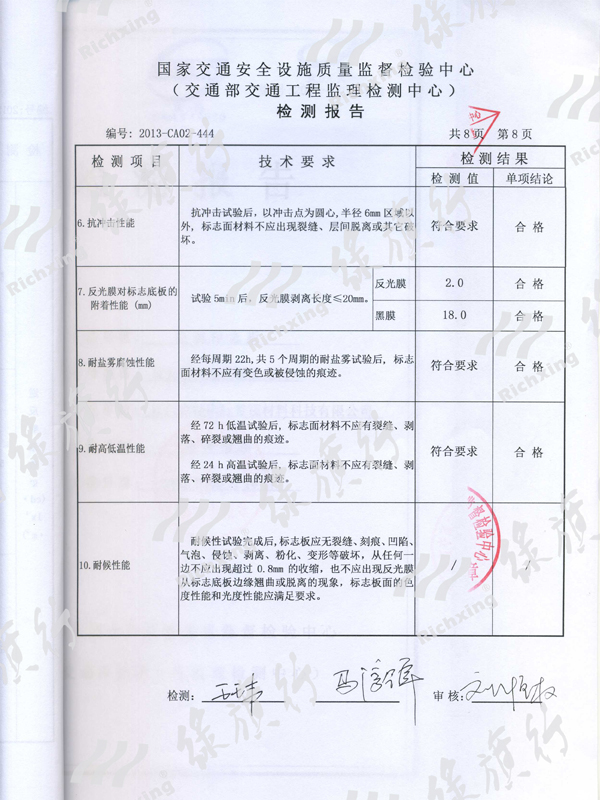 国家交通安全设施质量监督检验中心
（交通部交通工程监理检测中心）
检测报告
编号: 2013-CA02-444
共8页 第8页
检测项目
技术要求
检测结果
检测值
单项结论
6.抗冲击性能
抗冲击试验后，以冲击点为圆心,半径6mm区域以
外，标志面材料不应出现裂缝、层间脱离或其它破
坏。
符合要求
合格
7.反光膜对标志底板的
附着性能 (mm)
试验5min后，反光膜剥离长度≤20mm。
反光膜
2.0
合格
黑膜
18.0
合格
8.耐盐雾腐蚀性能
经每周期22h,共5个周期的耐盐雾试验后，标志
面材料不应有变色或被侵蚀的痕迹。
符合要求
合格
9.耐高低温性能
经72h低温试验后，标志面材料不应有裂缝、剥
落、碎裂或翘曲的痕迹。
经24h高温试验后，标志面材料不应有裂缝、剥
落、碎裂或翘曲的痕迹。
符合要求
合格
10.耐候性能
耐候性试验完成后,标志板应无裂缝、刻痕、凹陷、
气泡、侵蚀、剥离、粉化、变形等破坏，从任何一
边不应出现超过0.8mm的收缩，也不应出现反光膜
从标志底板边缘翘曲或脱离的现象，标志板面的色
度性能和光度性能应满足要求。
/
/
检测:
审核:
绿旗行
Richxing